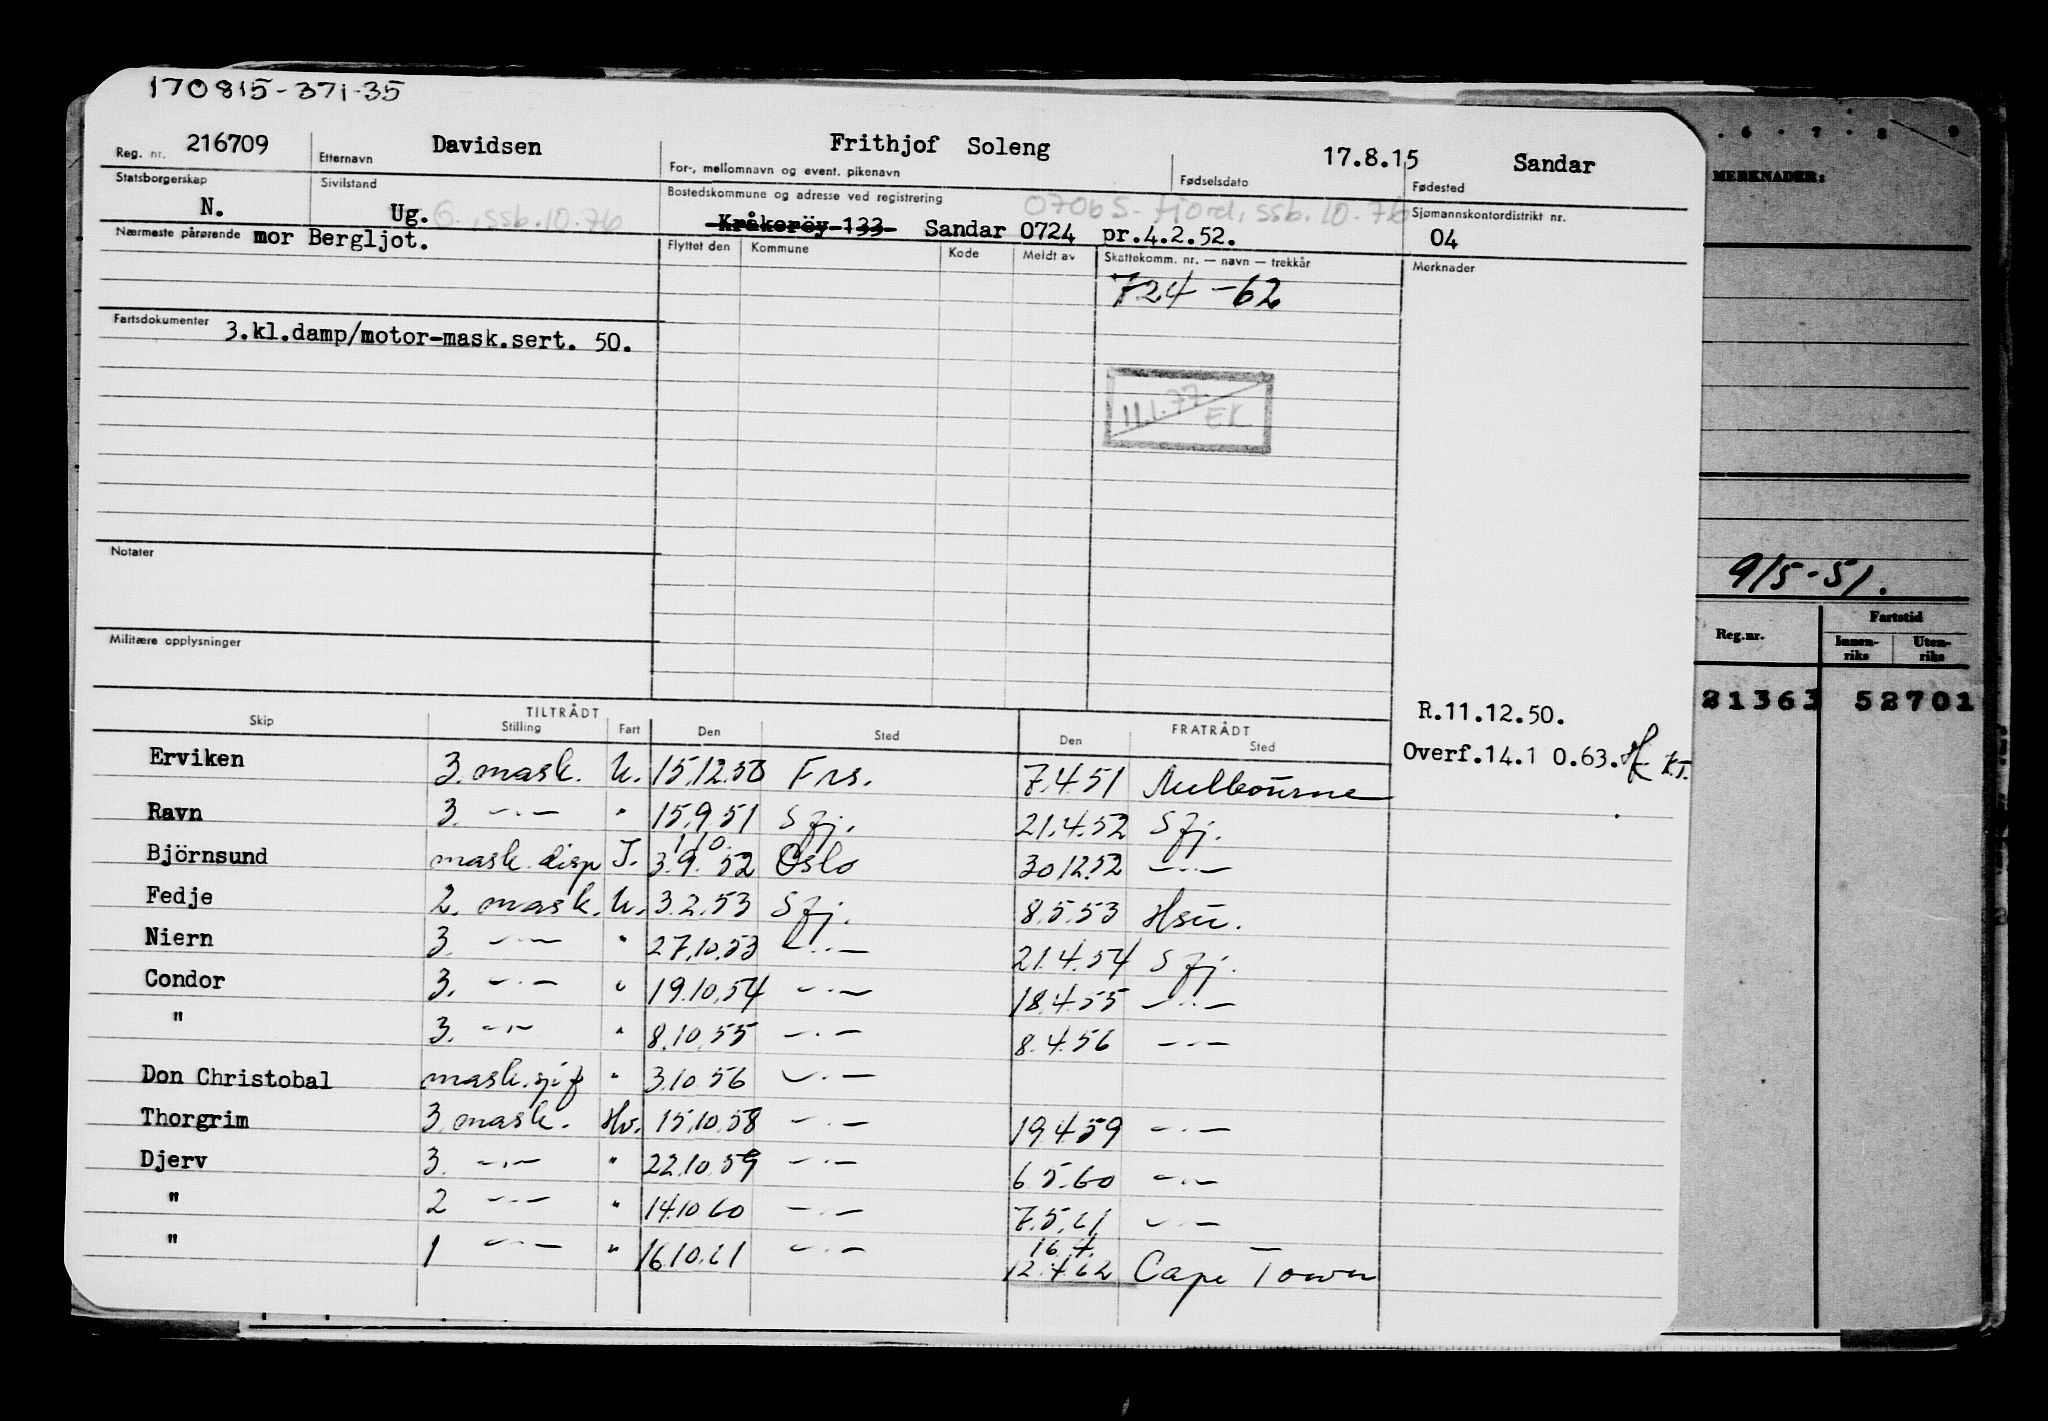 170815-371-35
Reg. nr. 216709 Etternavn Davidsen For-, mellomnavn og event. pikenavn Frithjof Soleng Fødselsdato 17.8.15 Fødested Sandar
Statsborgerskap N. Sivilstand Ug. G., ssb.10.76 Bostedskommune og adresse ved registrering 0706 S. fjord, ssb. 10.76 Sjømannskontordistrikt nr.
Kråkeröy 133 Sandar 0724 pr.4.2.52. 04
Nærmeste pårørende mor Bergljot. Flyttet den Kommune Kode Meldt av Skattekomm. nr. — navn — trekkår Merknader
724 -62
Fartsdokumenter 3.kl.damp/motor-mask.sert. 50.
11.1.77. EK
Notater
Militære opplysninger
R.11.12.50.
Overf.14.1 0.63. K.T.
Skip TILTRÅDT Stilling Fart Den Sted FRATRÅDT Den Sted
Erviken 3. mask. U. 15.12.50 Frs. 7.4.51 Melbourne
Ravn 3. -·- " 15.9.51 Sfj. 21.4.52 Sfj.
Björnsund mask. disp J. 3.9.52 1.10. Oslo 30.12.52 -·-
Fedje 2. mask. U. 3.2.53 Sfj. 8.5.53 Hsu.
Niern 3. -·- " 27.10.53 -·- 21.4.54 Sfj.
Condor 3. -·- " 19.10.54 -·- 18.4.55 -·-
" 3. -·- " 8.10.55 -·- 8.4.56 -·-
Don Christobal mask. " 3.10.56 -·-
Thorgrim 3. mask. Hv. 15.10.58 -·- 19.4.59 -·-
Djerv 3. -·- " 22.10.59 -·- 6.5.60 -·-
" 2 -·- " 14.10.60 -·- 7.5.61 -·-
" 1 -·- " 16.10.61 -·- 16.4. 12.4.62 Cape Town
. 6 . 7 . 8 9
MERKNADER:
9/5-51.
Reg.nr. Fartstid
Innen-riks Uten-riks
21363 52701